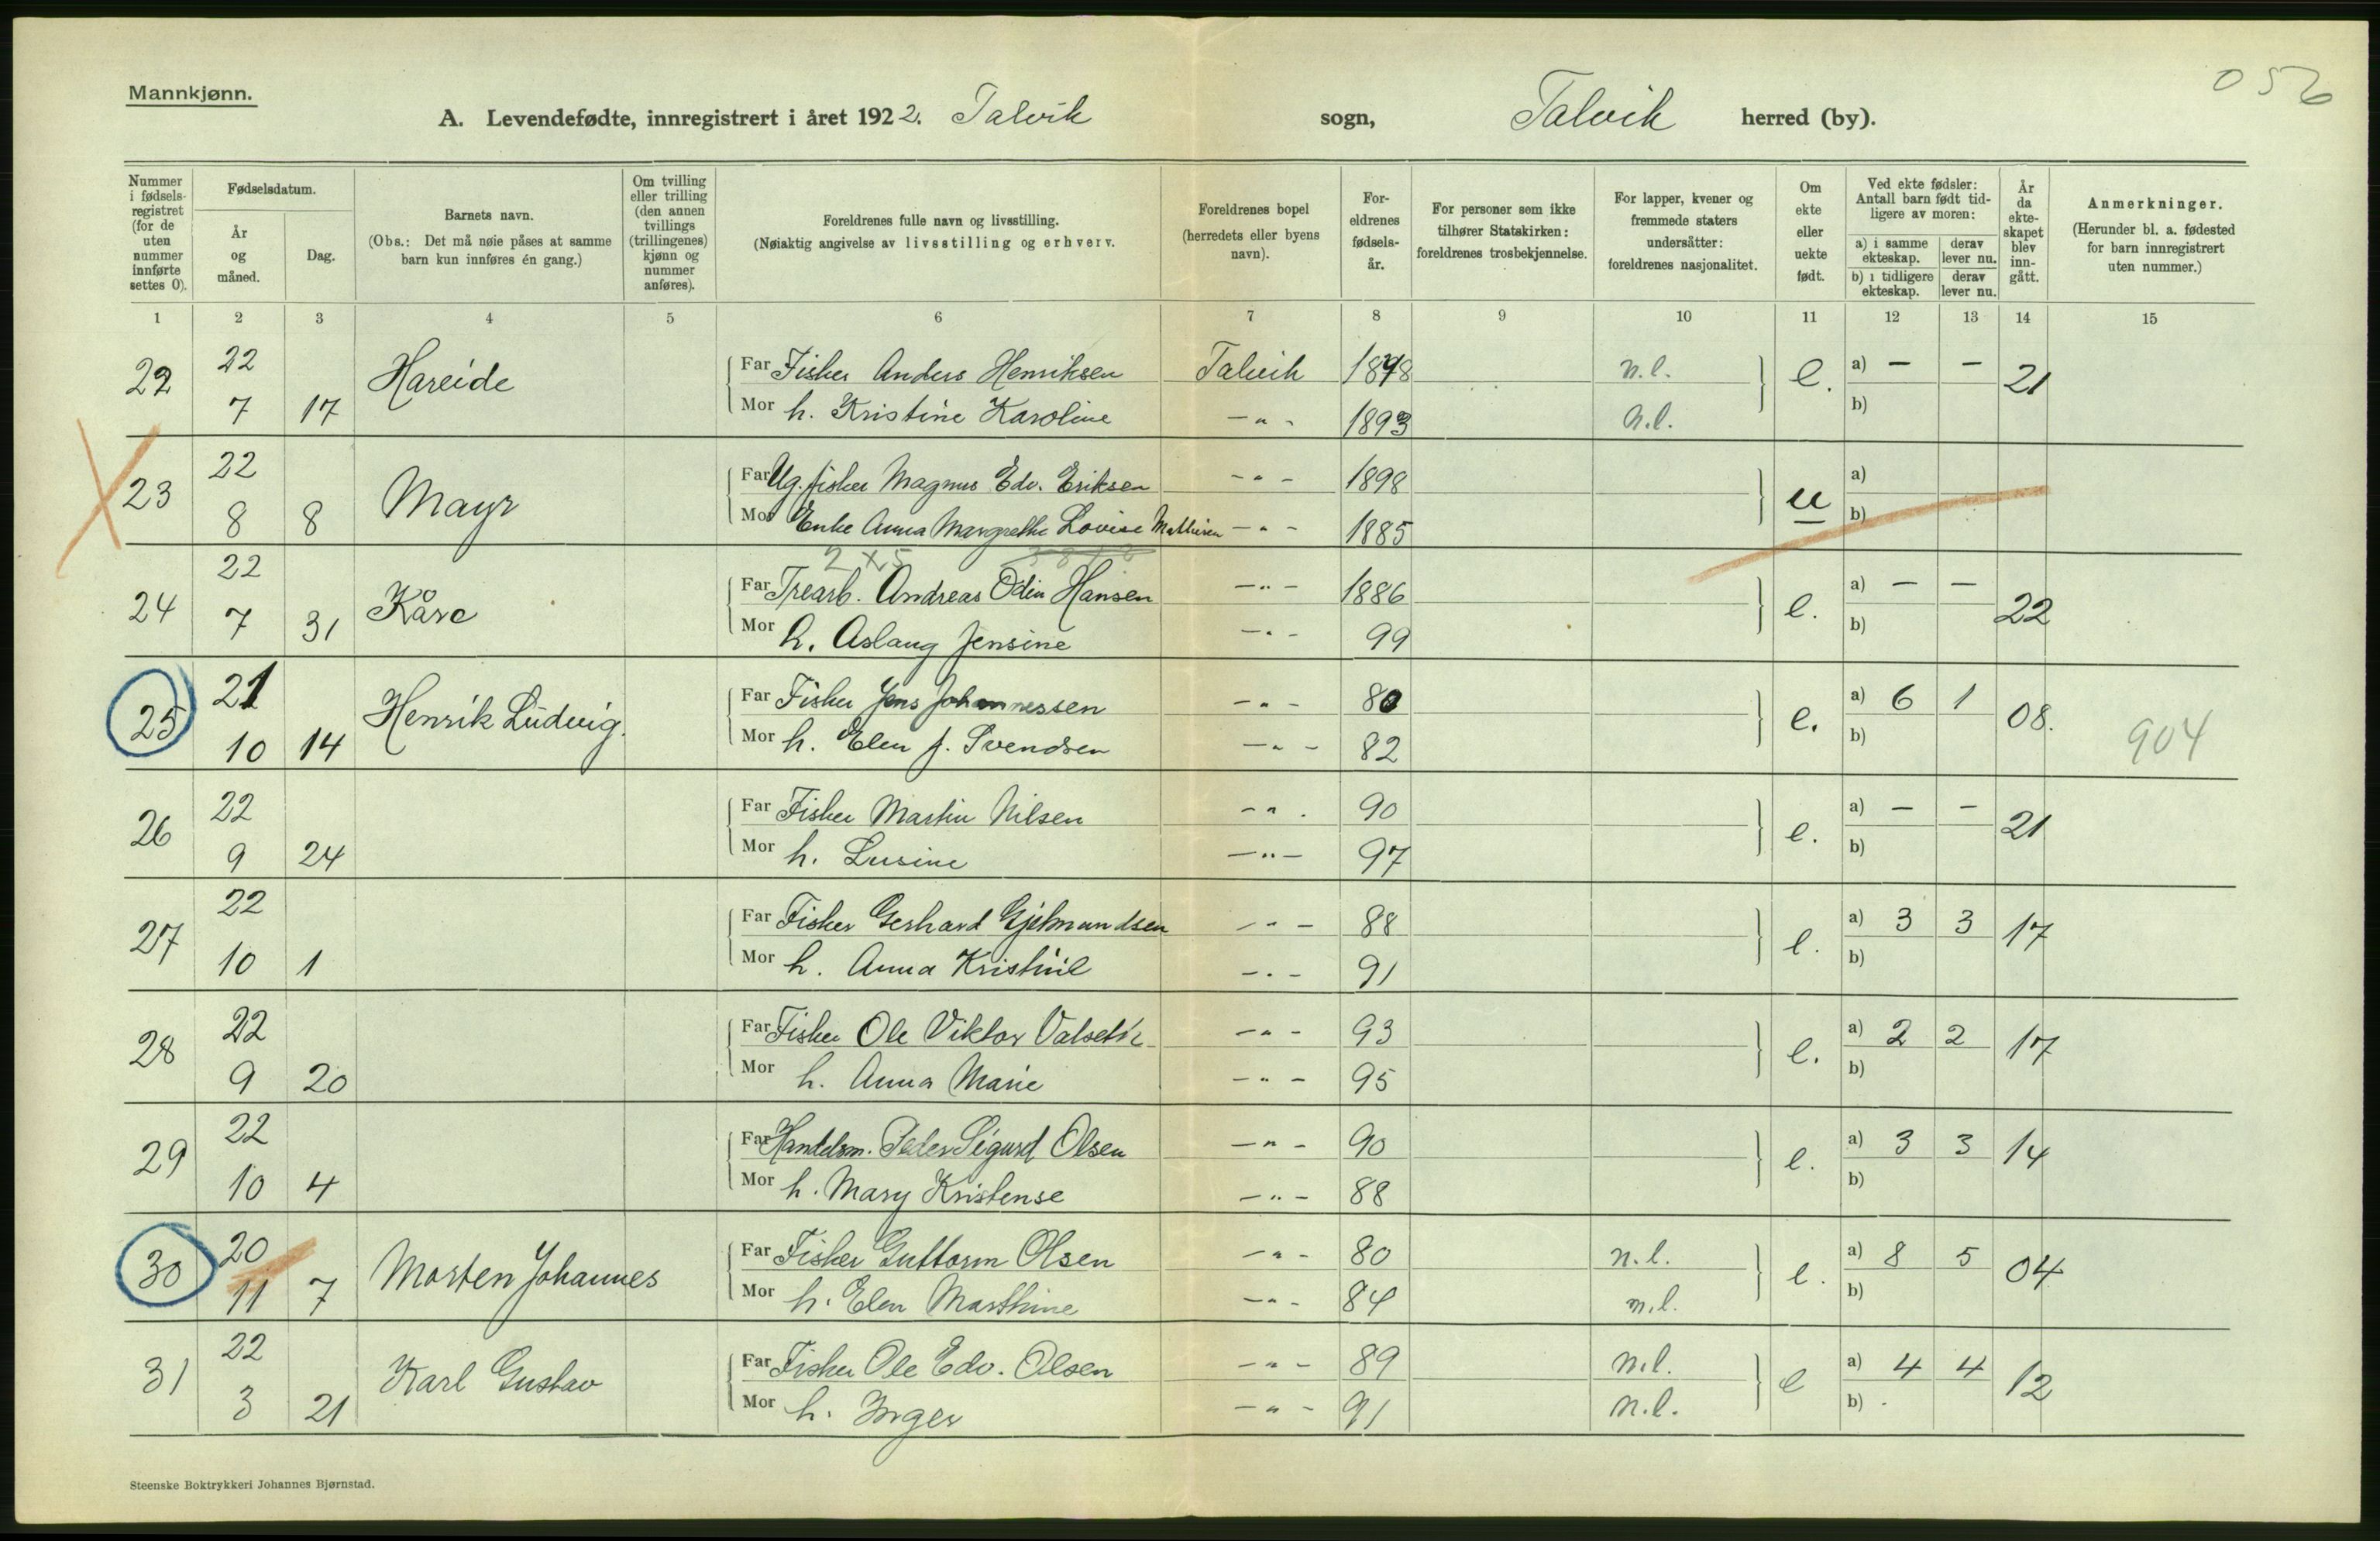 Mannkjønn.
056
A. Levendefødte, innregistrert i året 1922. Talvik sogn, Talvik herred (by).
Nummer i fødsels-registret (for de uten nummer innførte settes 0).
Fødselsdatum.
År og måned.
Dag.
Barnets navn.
(Obs.: Det må nøie påses at samme barn kun innføres én gang.)
Om tvilling eller trilling (den annen tvillings (trillingenes) kjønn og nummer anføres).
Foreldrenes fulle navn og livsstilling.
(Nøiaktig angivelse av livsstilling og erhverv.
Foreldrenes bopel (herredets eller byens navn).
For-eldrenes fødsels-år.
For personer som ikke tilhører Statskirken: foreldrenes trosbekjennelse.
For lapper, kvener og fremmede staters undersåtter: foreldrenes nasjonalitet.
Om ekte eller uekte født.
Ved ekte fødsler: Antall barn født tid-ligere av moren:
a) i samme ekteskap.
derav lever nu.
b) i tidligere ekteskap.
derav lever nu.
År da ekte-skapet blev inn-gått.
Anmerkninger.
(Herunder bl. a. fødested for barn innregistrert uten nummer.)
1 2 3 4 5 6 7 8 9 10 11 12 13 14 15
22 22 Hareide Far Fisker Anders Henriksen Talvik 1898 n.l. e. a) — — 21
7 17 Mor h. Kristine Karoline —"— 1893 n.l. b)
23 22 Mayr Far Ug. fisker Magnus Edv. Eriksen —"— 1898 u a)
8 8 Mor Enke Anna Margrethe Lovise Mathisen —"— 1885 b)
2 x 5
24 22 Kåre Far Trearb. Andreas Odin Hansen —"— 1886 e. a) — — 22
7 31 Mor h. Aslaug Jensine —"— 99 b)
25 21 Henrik Ludvig. Far Fisker Jens Johannessen —"— 80 e. a) 6 1 08. 904
10 14 Mor h. Elen J. Svendsen —"— 82 b)
26 22 Far Fisker Martin Nilsen —"— 90 e. a) — — 21
9 24 Mor h. Lusine —"— 97 b)
27 22 Far Fisker Gerhard Gjetmundsen —"— 88 e. a) 3 3 17
10 1 Mor h. Anna Kristine —"— 91 b)
28 22 Far Fisker Ole Viktor —"— 93 e. a) 2 2 17
9 20 Mor h. Anna Marie —"— 95 b)
29 22 Far Handelsm. Peder Sigurd Olsen —"— 90 e. a) 3 3 14
10 4 Mor h. Mary Kristense —"— 88 b)
30 20 Morten Johannes Far Fisker Guttorm Olsen —"— 80 n.l. e. a) 8 5 04
11 7 Mor h. Elen Marthine —"— 84 n.l. b)
31 22 Karl Gustav Far Fisker Ole Edv. Olsen —"— 89 n.l. e a) 4 4 12
3 21 Mor h. Inger —"— 91 n.l. b)
Steenske Boktrykkeri Johannes Bjørnstad.